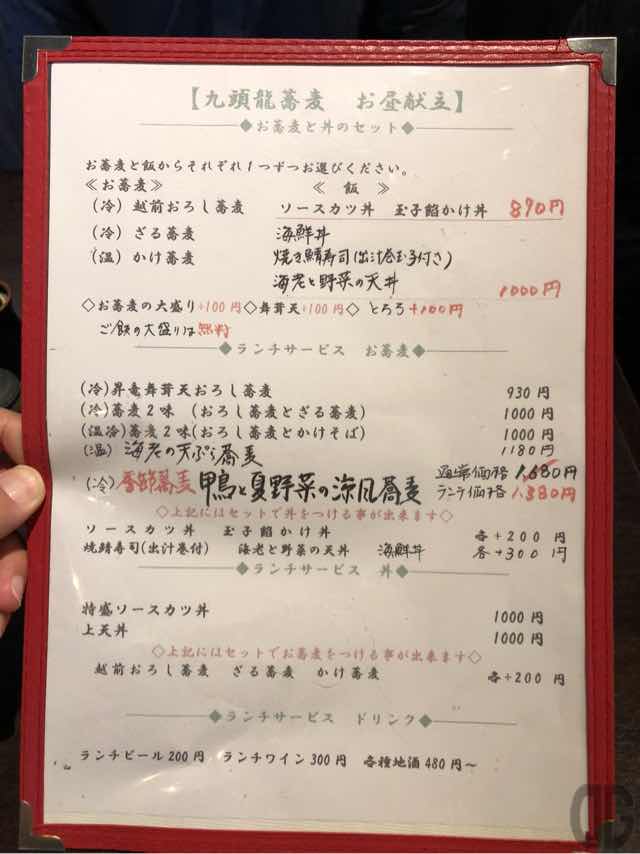 【九頭龍蕎麦 お昼献立】
◆お蕎麦と丼のセット◆
お蕎麦と飯からそれぞれ1つずつお選びください。
≪お蕎麦≫ ≪ 飯 ≫
(冷) 越前おろし蕎麦 ソースカツ丼 玉子餡かけ丼 890円
(冷) ざる蕎麦 海鮮丼
(温) かけ蕎麦 焼き鯖寿司(出汁巻玉子付き)
海老と野菜の天丼 1000円
◇お蕎麦の大盛り+100円◇舞茸天+100円◇ とろろ+100円
ご飯の大盛りは無料
◆ランチサービス お蕎麦◆
(冷)昇竜舞茸天おろし蕎麦 930円
(冷)蕎麦2味 (おろし蕎麦とざる蕎麦) 1000円
(温冷)蕎麦2味(おろし蕎麦とかけそば) 1000円
(温) 海老の天ぷら蕎麦 1180円
(冷) 季節蕎麦 鴨と夏野菜の涼風蕎麦 通常価格 1,680円
ランチ価格 1,380円
◇上記にはセットで丼をつける事が出来ます◇
ソースカツ丼 玉子餡かけ丼 各+200円
焼鯖寿司(出汁巻付) 海老と野菜の天丼 海鮮丼 各+300円
◆ランチサービス 丼◆
特盛ソースカツ丼 1000円
上天丼 1000円
◇上記にはセットでお蕎麦をつける事が出来ます◇
越前おろし蕎麦 ざる蕎麦 かけ蕎麦 各+200円
◆ランチサービス ドリンク◆
ランチビール200円 ランチワイン300円 各種地酒480円～